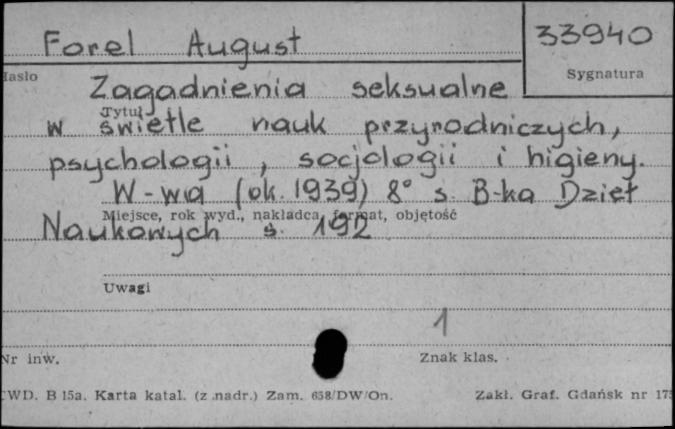 Forel August
33940
Hasło
Sygnatura
Zagadnienia seksualne
Tytuł
w świetle nauk przyrodniczych,
psychologii, socjologii i higieny.
W-wa (ok. 1939) 8° s. B-ka Dzieł
Miejsce, rok wyd., nakładca, format, objętość
Naukowych s. 192
Uwagi
1
Nr inw.
Znak klas.
CWD. B 15a. Karta katal. (z nadr.) Zam. 658/DW/On.
Zakł. Graf. Gdańsk nr 175